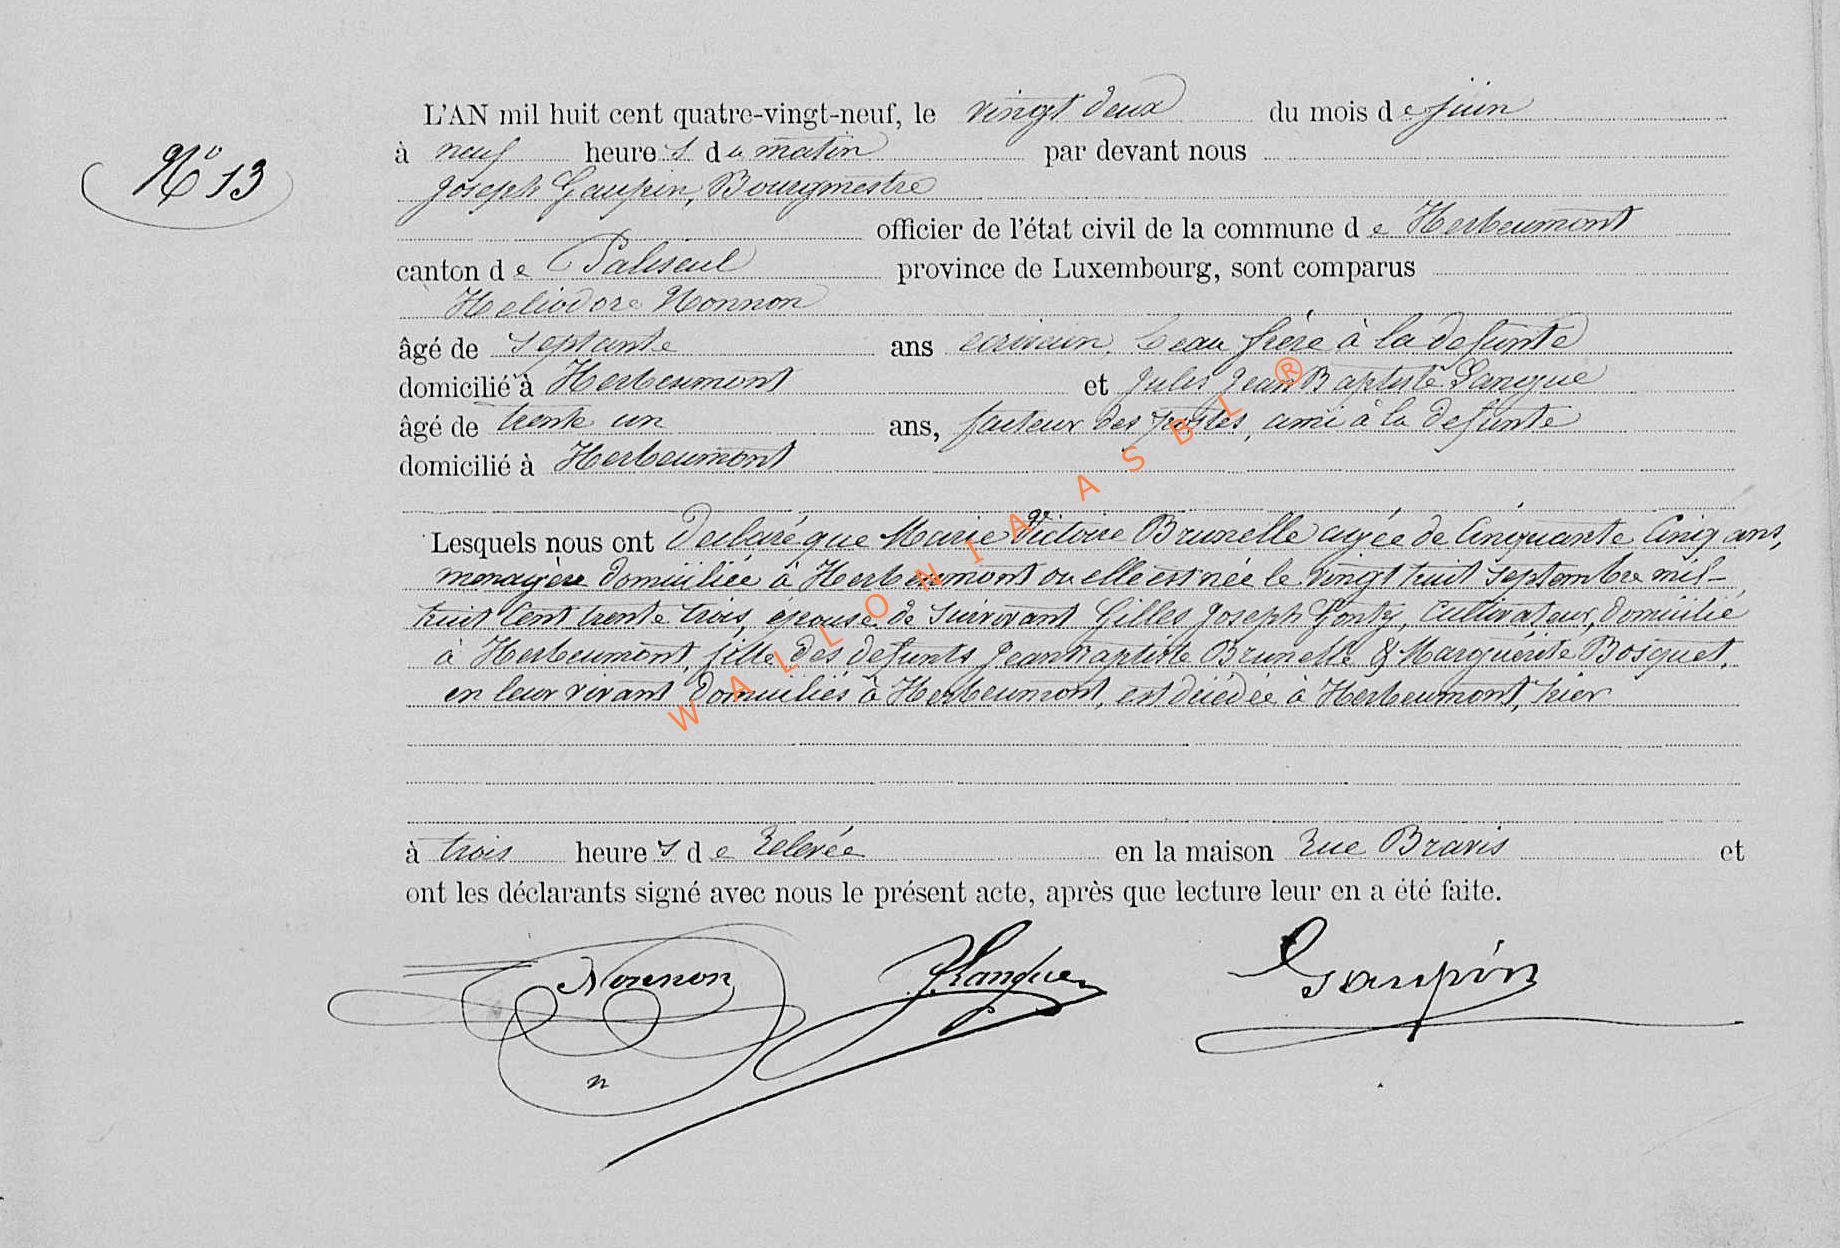 L'AN mil huit cent quatre-vingt-neuf, le vingt deux du mois de juin
N° 13
à neuf heures du matin par devant nous
Joseph Gaupin, Bourgmestre
officier de l'état civil de la commune de Herbeumont
canton de Paliseul province de Luxembourg, sont comparus
Heliodore Nonnon
âgé de septante ans écrivain, beau frère à la defunte
domicilié à Herbeumont et Jules Jean Baptiste Langue
âgé de trente un ans, facteur des postes, ami à la defunte
domicilié à Herbeumont
Lesquels nous ont declaré que Marie Victoire Brunelle agée de Cinquante Cinq ans,
menagère domiciliée à Herbeumont ou elle est née le vingt huit septembre mil-
huit Cent trente trois, épouse de survivant Gilles Joseph Gonty, Cultivateur, domicilié
à Herbeumont, fille des defunts Jean Baptiste Brunelle & Marguérite Bosquet,
en leur vivant domiciliés à Herbeumont, est décédée à Herbeumont, hier
à trois heures de Relevée en la maison Rue Bravis et
ont les déclarants signé avec nous le présent acte, après que lecture leur en a été faite.
Nonnon JLangue Gaupin
WALLONIA ASBL ®